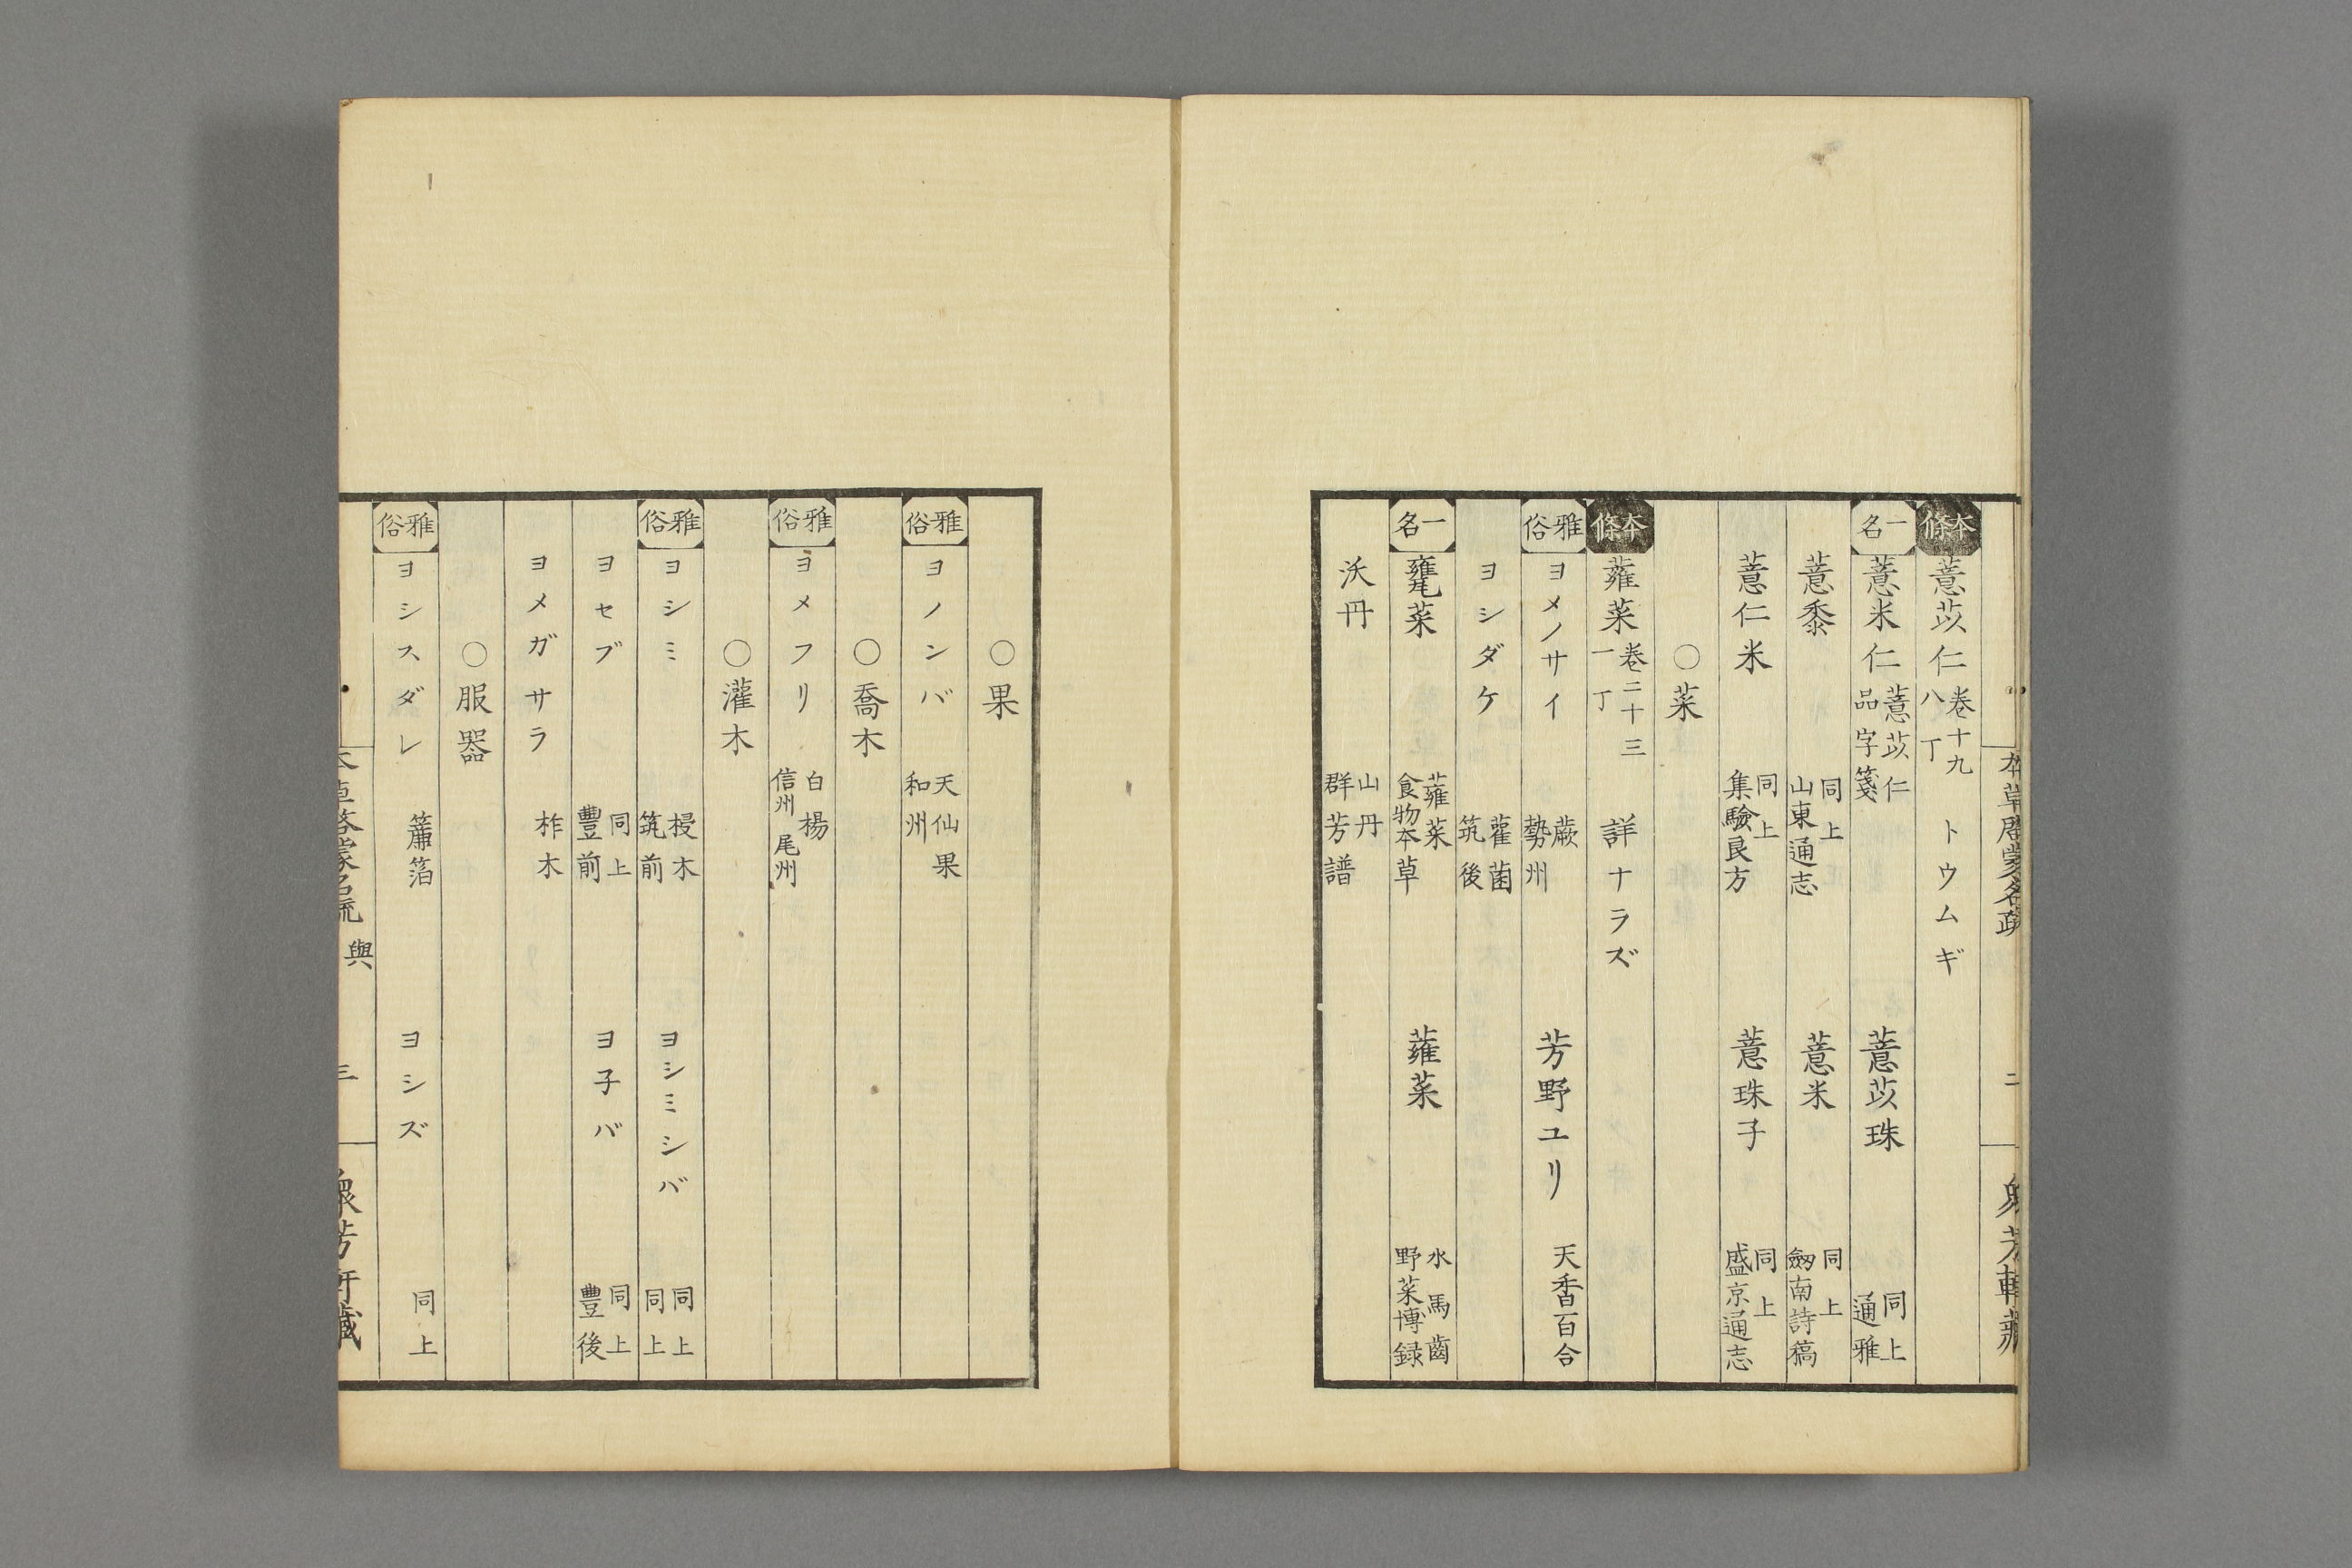 本條 薏苡仁 卷十九 八丁 トウムギ
一名 薏米仁 薏苡仁 品字箋 薏苡珠 同上 通雅
薏黍 同上 山東通志 薏米 同上 劔南詩稿
薏仁米 同上 集驗良方 薏珠子 同上 盛京通志
○菜
本條 蕹菜 卷二十三 一丁 詳ナラズ
雅俗 ヨメノサイ 蕨 勢州 芳野ユリ 天香百合
ヨシダケ 雚菌 筑後
一名 甕菜 蕹菜 食物本草 蕹菜 水馬齒 野菜博録
沃丹 山丹 群芳譜
○果
雅俗 ヨノンバ 天仙果 和州
○喬木
雅俗 ヨメフリ 白楊 信州 尾州
○灌木
雅俗 ヨシミ 梫木 筑前 ヨシミシバ 同上 同上
ヨセブ 同上 豐前 ヨ子バ 同上 豐後
ヨメガサラ 柞木
○服器
雅俗 ヨシスダレ 簫箔 ヨシズ 同上
與 三